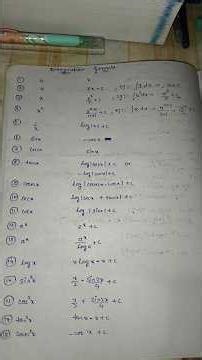 Integration Formula
① 0 K
② K Kx + c
③ x x²/2 + c
④ xⁿ xⁿ⁺¹/n+1 + c
⑤ 1/x log|x| + c
⑥ sinx -cosx
⑦ cosx sinx
⑧ tanx log|secx| + c or
-log|cosx| + c
⑨ log|cosecx - cotx| + c
⑩ secx log|secx + tanx| + c
⑪ cotx log|sinx| + c
⑫ eˣ eˣ + c
⑬ aˣ aˣ/log a + c
⑭ logx x logx - x + c
sin²x x/2 - sin2x/4 + c
cos²x x/2 + sin2x/4 + c
⑰ tan²x tanx - x + c
⑱ + c